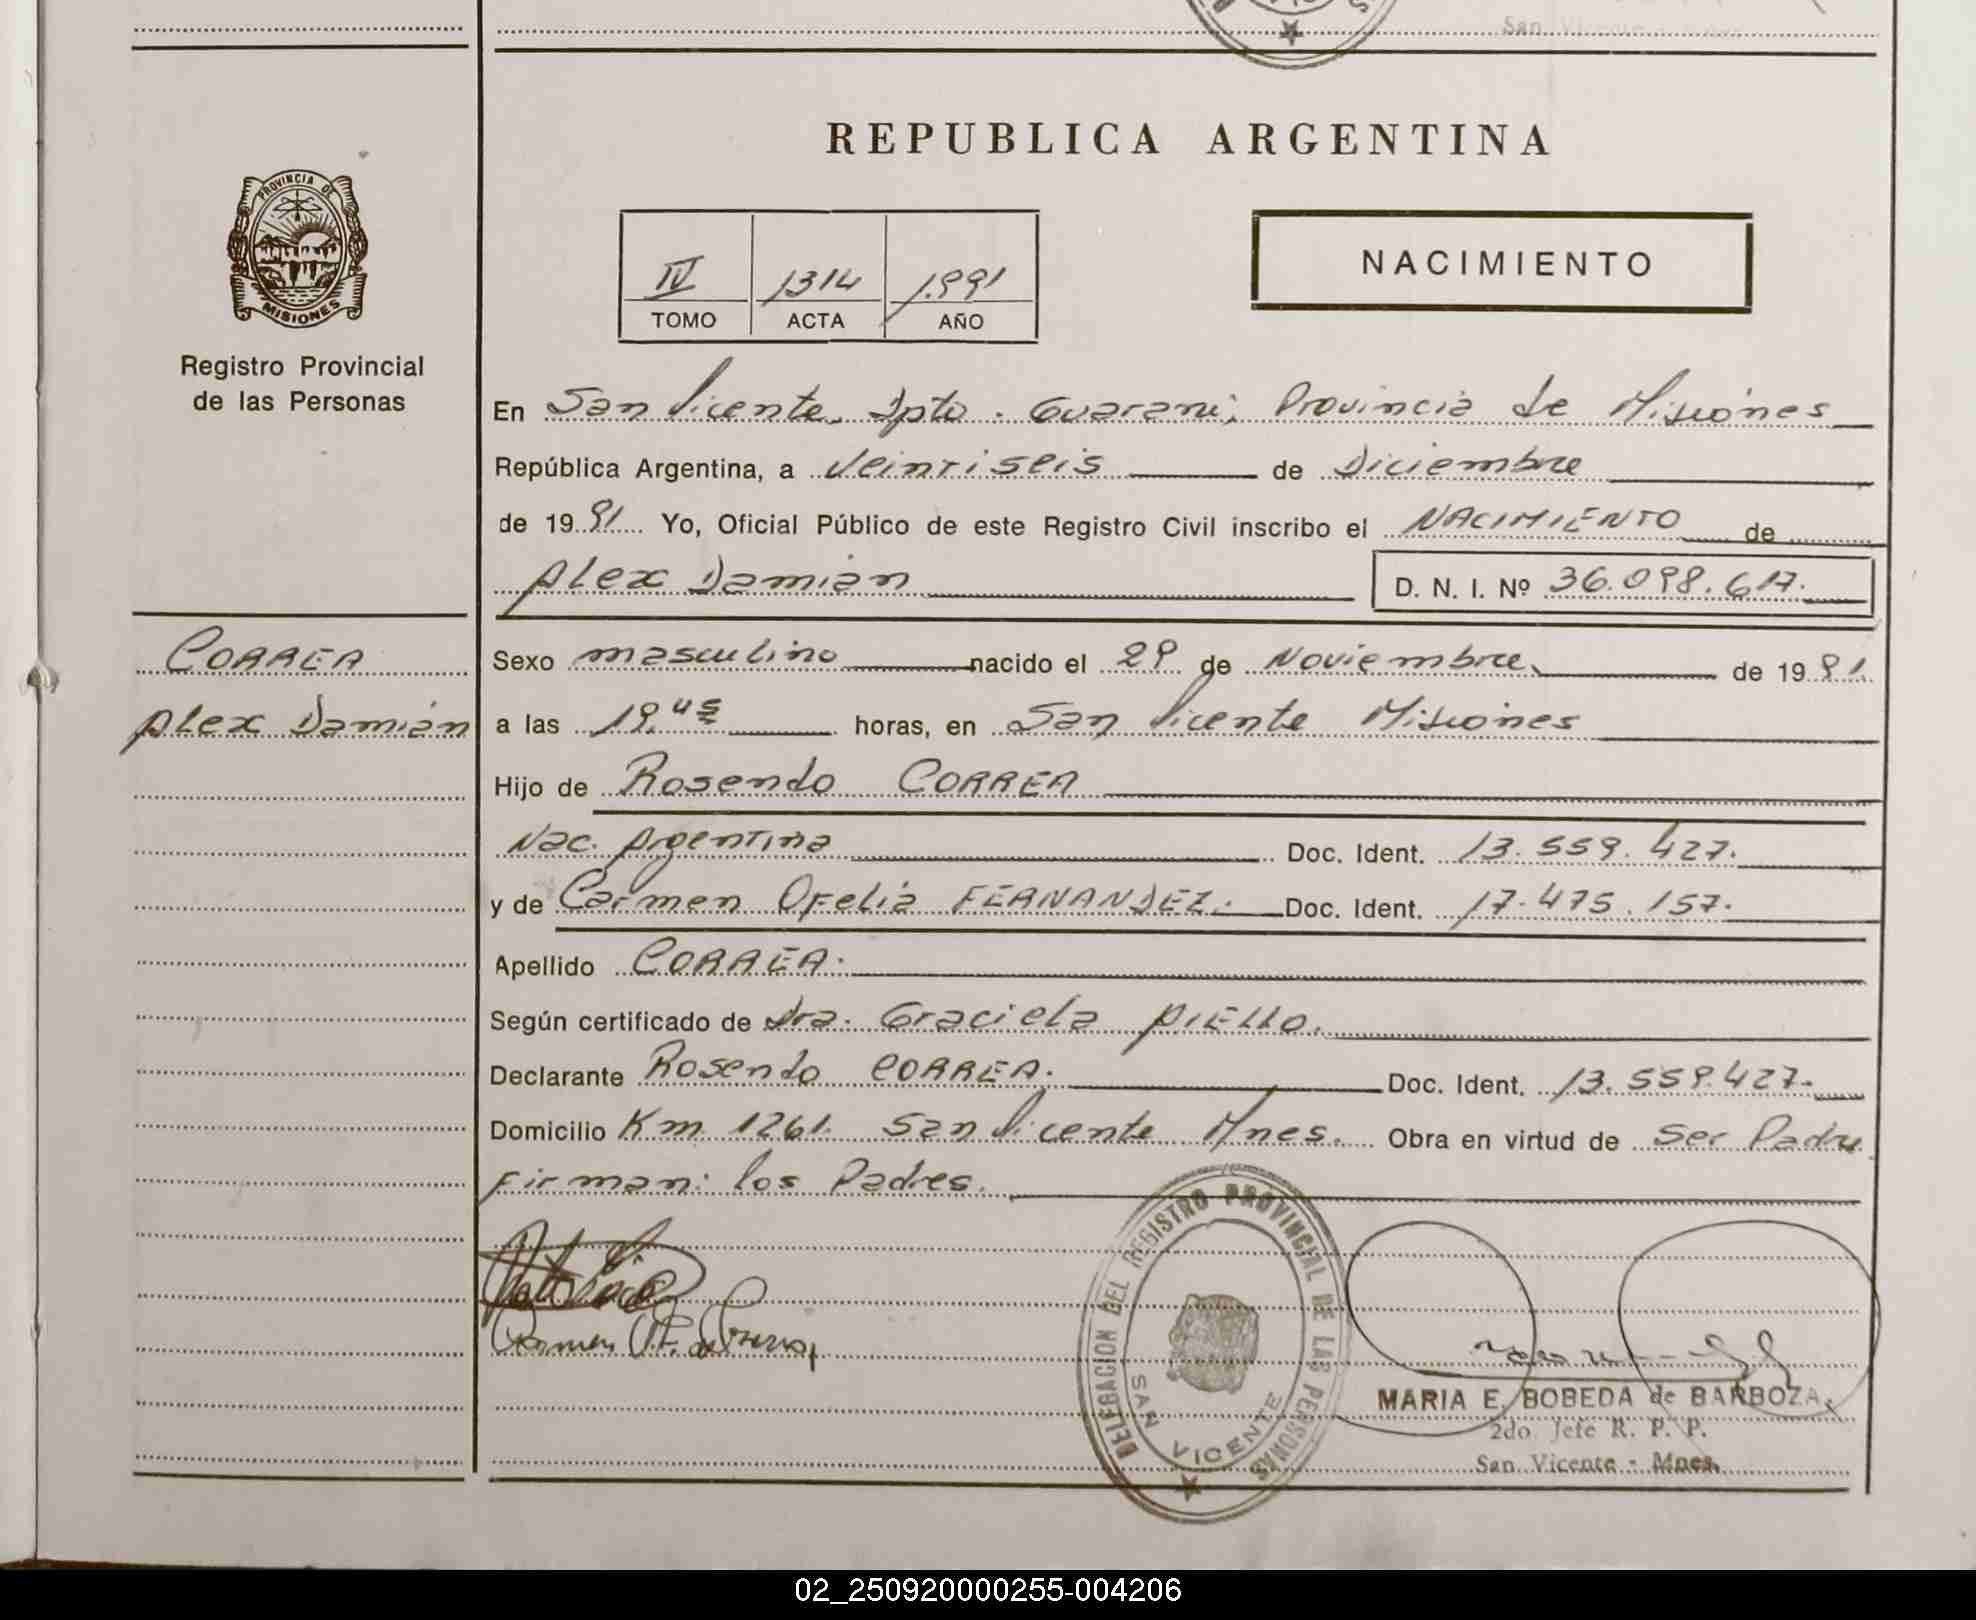 San Vicente - Mnes.
REPUBLICA ARGENTINA
PROVINCIA DE
MISIONES
Registro Provincial
de las Personas
IV 1314 1.991
TOMO ACTA AÑO
NACIMIENTO
En San Vicente, Dpto. Guaraní, Provincia de Misiones
República Argentina, a Veintiseis de Diciembre
de 1991 Yo, Oficial Público de este Registro Civil inscribo el NACIMIENTO de
Alex Damián D. N. I. Nº 36.098.617.
CORREA
Alex Damián
Sexo masculino nacido el 29 de Noviembre de 1991.
a las 19,45 horas, en San Vicente Misiones
Hijo de Rosendo CORREA
Nac. Argentina Doc. Ident. 13.559.427.
y de Carmen Ofelia FERNANDEZ. Doc. Ident. 17.475.157.
Apellido CORREA.
Según certificado de Dra. Graciela
Declarante Rosendo CORREA. Doc. Ident. 13.559.427.
Domicilio Km 1261. San Vicente Mnes. Obra en virtud de Ser Padre
Firman: los Padres.
DELEGACION DEL REGISTRO PROVINCIAL DE LAS PERSONAS
SAN VICENTE
MARIA E. BOBEDA de BARBOZA
2do Jefe R. P. P.
San Vicente - Mnes.
02_250920000255-004206